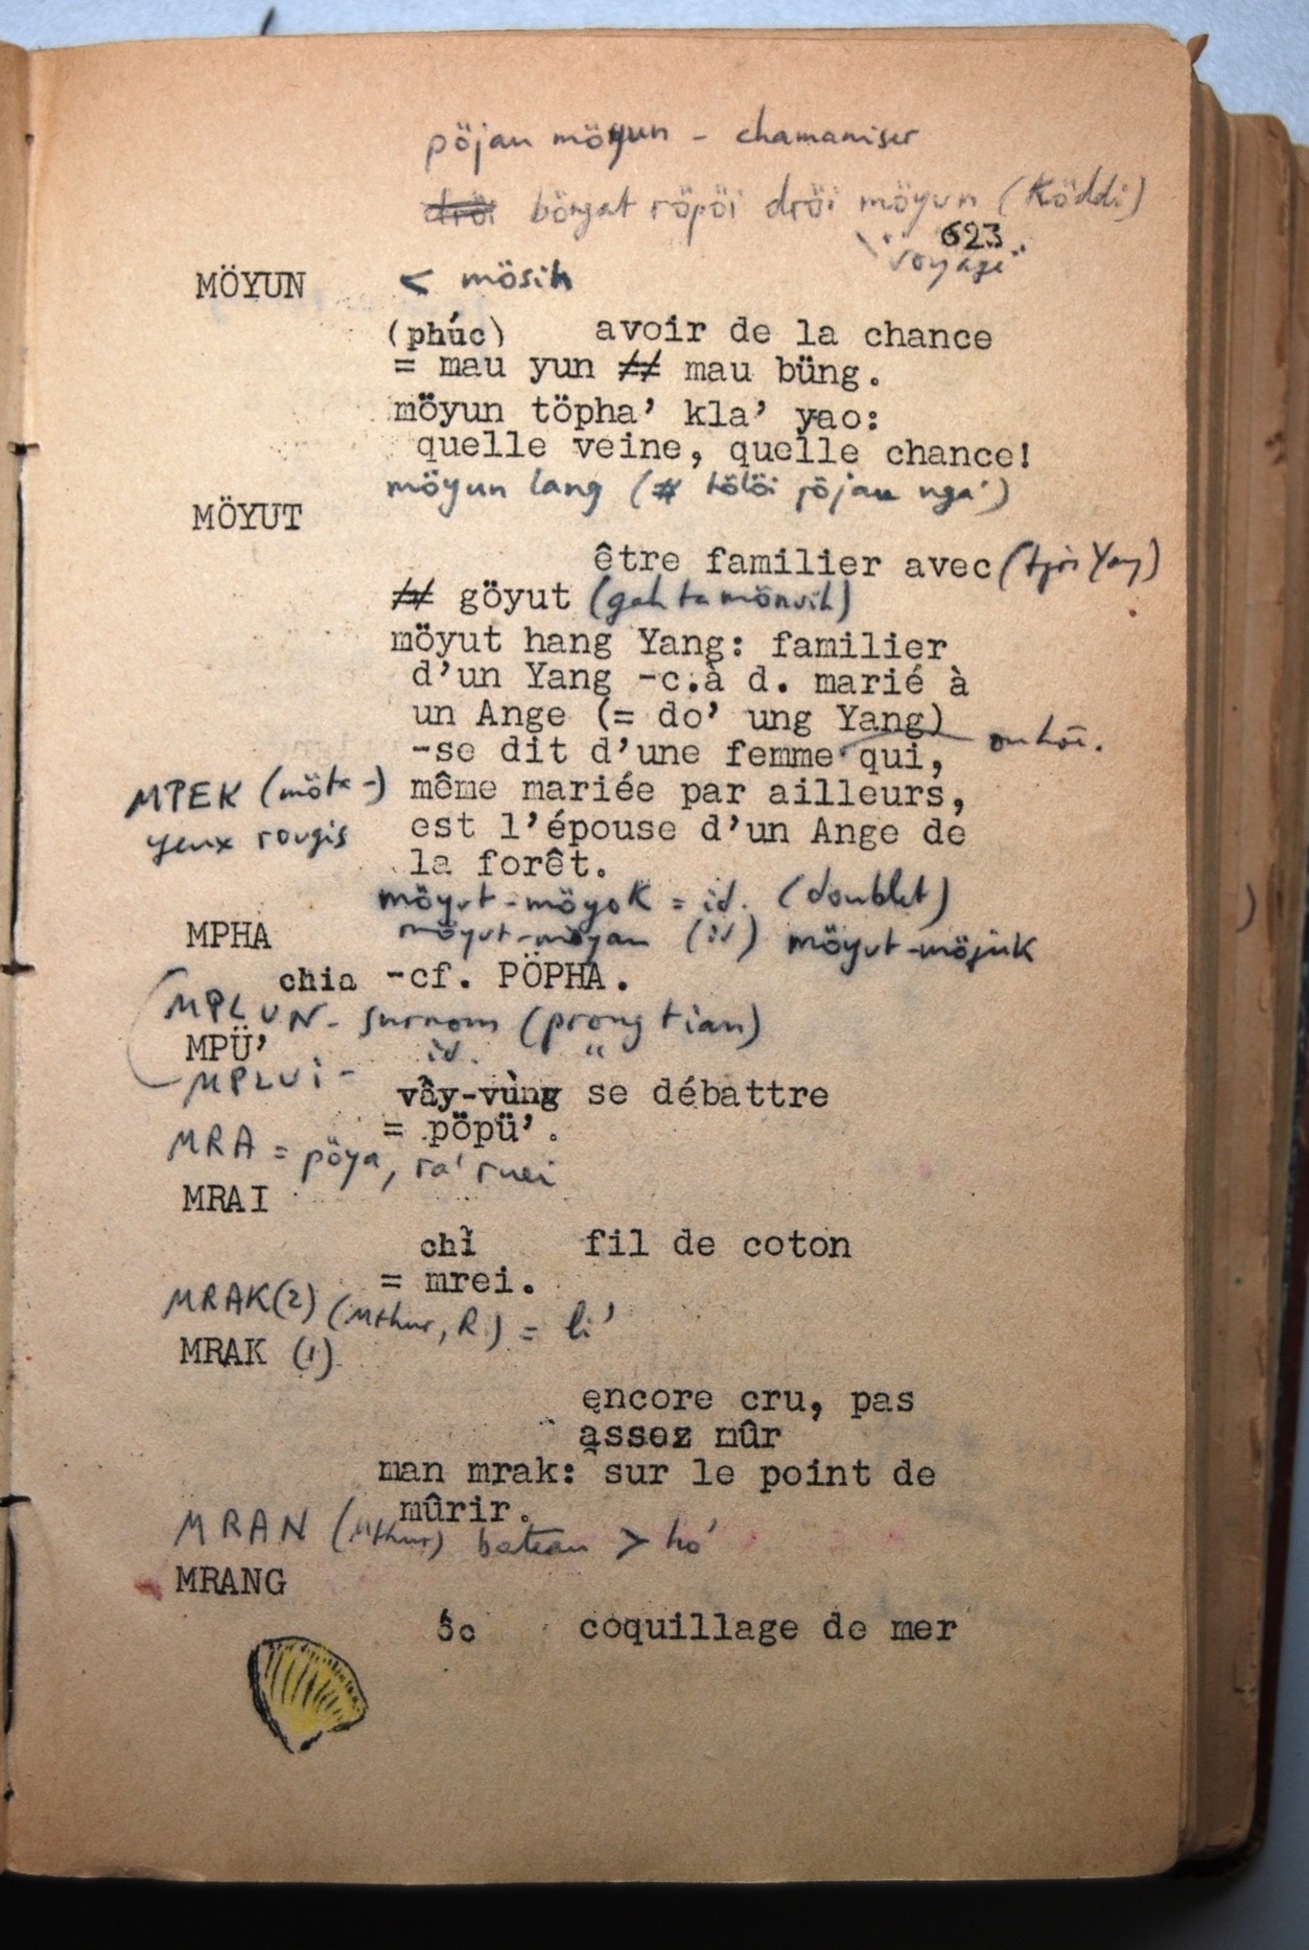 pöjan möyun - chamaniser
dröi böngat röpöi dröi möyun (Köddi)
623
"voyage"
MÖYUN < mösih
(phúc) avoir de la chance
= mau yun ≠ mau büng.
möyun töpha’ kla’ yao:
quelle veine, quelle chance!
möyun lang (≠ tölöi pöjau nga’)
MÖYUT
être familier avec
≠ göyut (gah ta mönuih)
möyut hang Yang: familier
d’un Yang -c.à d. marié à
un Ange (= do’ ung Yang)
-se dit d’une femme qui,
MPEK (möta -) même mariée par ailleurs,
yeux rougis est l’épouse d’un Ange de
la forêt.
möyut-möyok = id. (doublet)
MPHA möyut-möyam (id) möyut-möjuk
chia -cf. PÖPHA.
MPLUN - surnom (prong tian)
MPÜ’ id. "
MPLUI -
vẫy-vùng se débattre
= pöpü’.
MRA = pöya, ra’ ruei
MRAI
chỉ fil de coton
= mrei.
MRAK(2) (Mthur, R.) = li’
MRAK (1)
encore cru, pas
assez mûr
man mrak: sur le point de
mûrir.
MRAN (Mthur) bateau > ho’
MRANG
ốc coquillage de mer